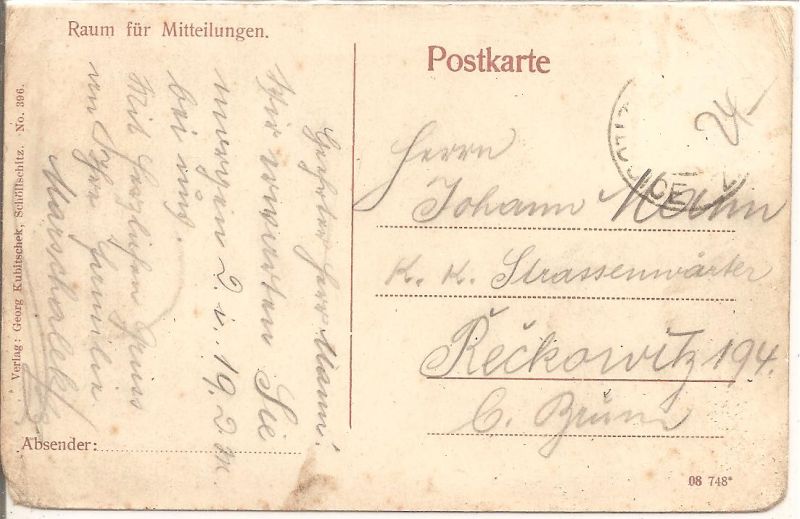 Raum für Mitteilungen.
Postkarte
Geehrter Herr Mann!
Wir erwarten Sie
morgen 2. V. 19. 2
bei uns.
Mit herzlichen Gruss
von Familie
Marschalek
Herrn
Johann Mann
K. K. Strassenwärter
Řečkowitz 194.
b. Brünn
24
Verlag: Georg Kubitschek, Schöllschitz. No. 396.
Absender:
08 748*